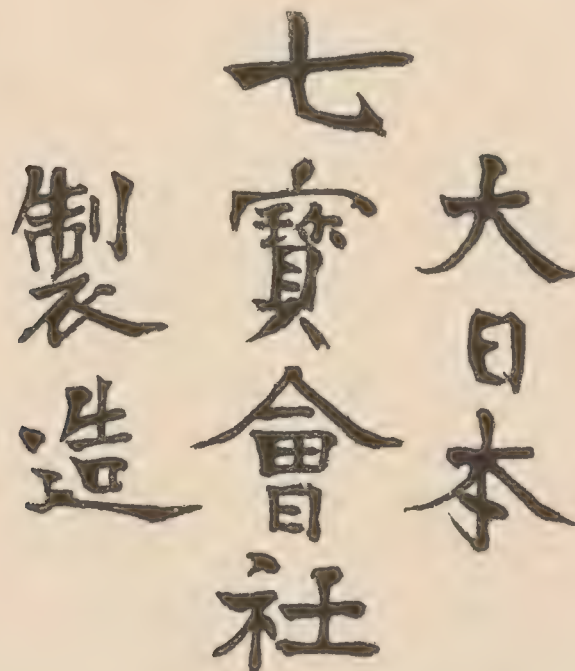 大日本
七寳會社
製造